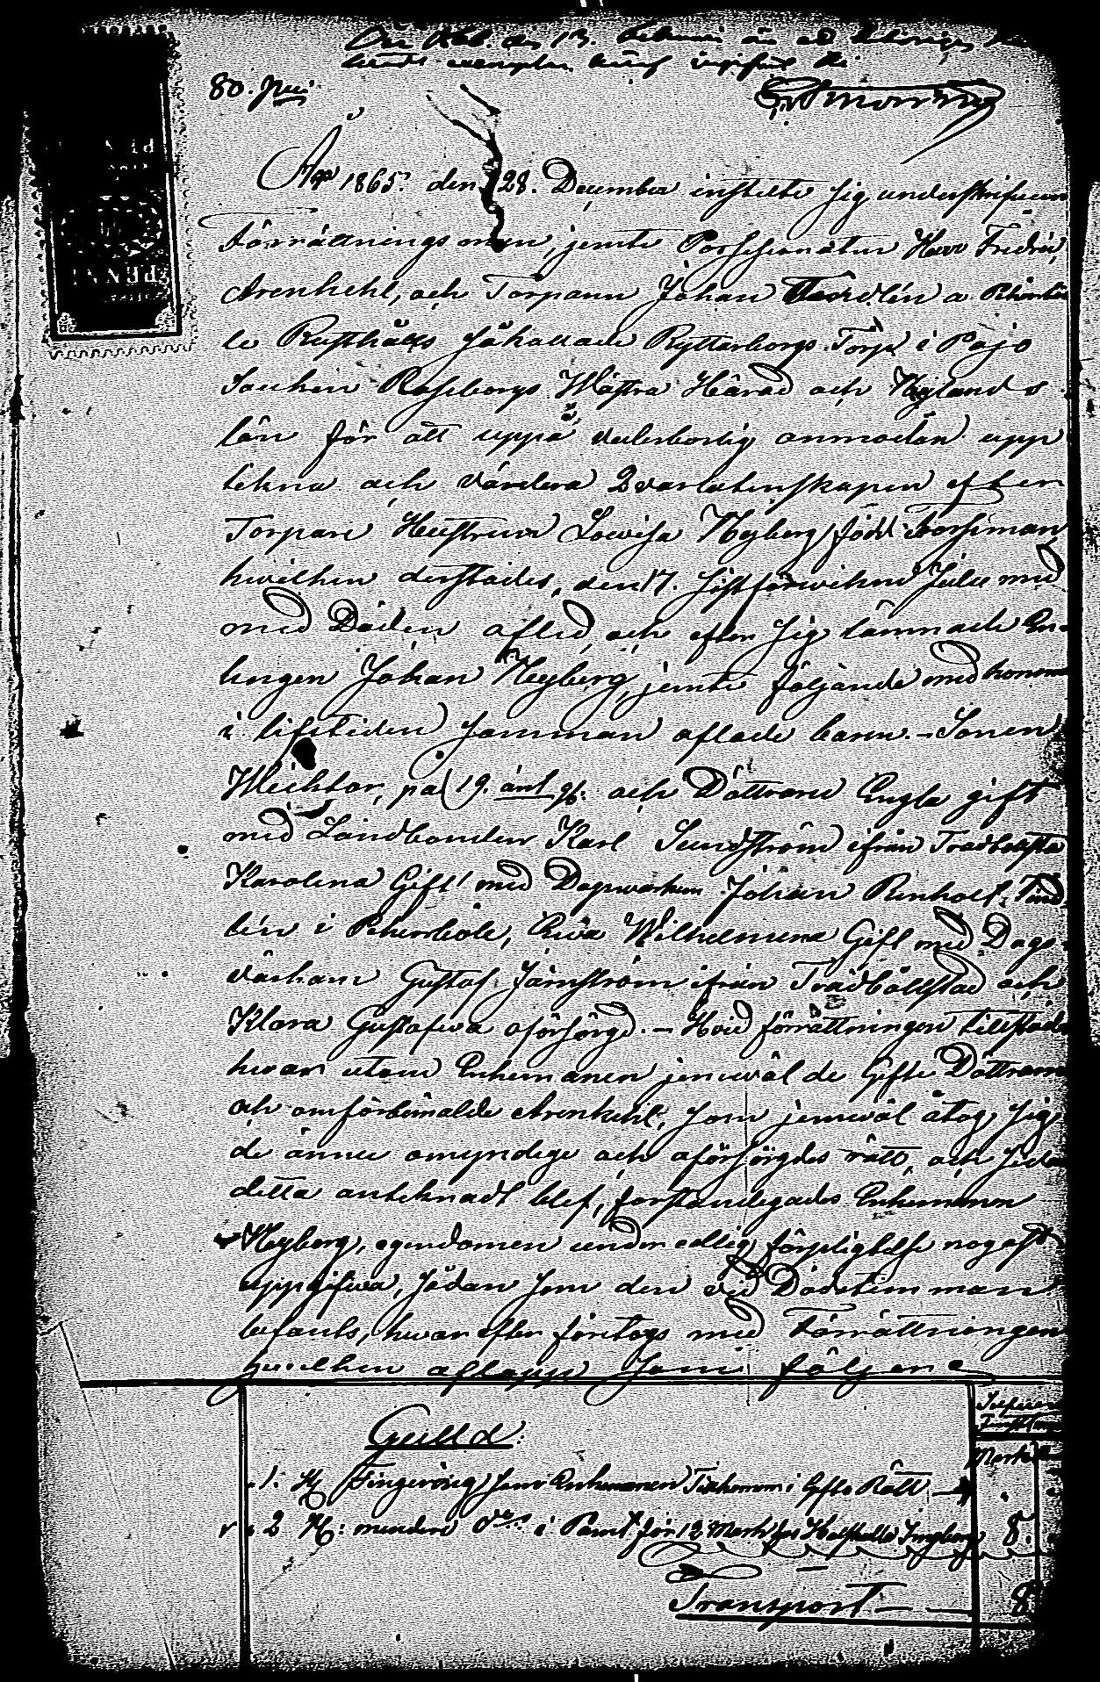 80. Pni
År 1865. den 28. December instelte sig underskrifven
Förrättnings man, jemte Possessionaten Herr Fredric
Arenkehl, och Torparen Johan Tendlin a
le Rusthålls Ryttarborgs Torp i Pojo
Sochen Raseborgs Wästra Härad och Nylands
län för att uppå vederbörlig anmodan upp
tekna och värdera Qvarlåtenskapen efter
Torpare Hustrun Lovisa Nyberg född Forsman
hvilken derstädes, den 17. sistförwikne Julii med
med Döden afled och efter sig lämnade En-
lingen Johan Nyberg, jemte följande med honom
i lifstiden samman aflade barn. - Sonen
Wichtor, på 19. året och Döttrarne Engla gift
med Landbonden Karl Sundström ifrån Trädbollsta
Karolina Gift med Dagwarkarn Johan Renholt Tend-
lin i Petersböle, Eva Wilhelmina Gift med Dags-
värkarn Gustaf Järnström ifrån Trädbållstad och
Klara Gustafwa oförsörgd. - Hvid förrättningen tillstädes
hvar utom Enkemanen jemwäl de Gifte Döttrarna
och omförmälde Arenkehl, som jemwäl åtog sig
de ännu omyndige och oförsörgdes rätt, och sedan
detta antecknadt blef, förständigades Enkemanen
Nyberg, egendomen under edlig förpligtelse nogast
uppgifwa, sådan som den vid Dödstimman
befants, hwar efter företogs med Förrättningen
hwilken aflopp som följer
Guld:
1. St Fingerring som Enkemanen Tilkommer i Gifto Rätt
2 St: mindre do i Pant för 12 Mark
8.
Transport — — 8